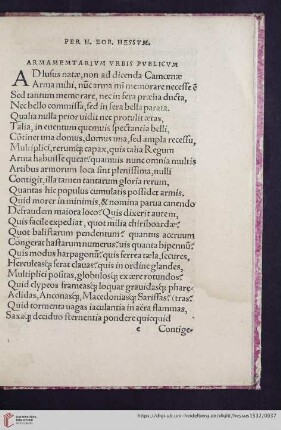 PER H. EOB. HESSVM.
ARMAMENTARIVM VRBIS PVBLICVM
AD lusus natæ, non ad dicenda Camœnæ
Arma mihi, nūc arma mi memorare necesse ē
Sed tantum memorare, nec in fera prælia ducta,
Nec bello commissa, sed in fera bella parata.
Qualia nulla prior uidit nec protulit ætas,
Talia, in euentum quemuis spectantia belli,
Cōtinet una domus, domus una, sed ampla recessu,
Multiplici, rerumq; capax, quis talia Regum
Arma habuisse queat? quamuis nunc omnia multis
Artibus armorum loca sint plenissima, nulli
Contigit, illa tamen tantarum gloria rerum,
Quantas hic populus cumulatis possidet armis.
Quid moror in minimis, & nomina parua canendo
Defraudem maiora loco? Quis dixerit autem,
Quis facile expediat, quot milia chirobombardæ?
Quot balistarum pendentum? quantus aceruus
Congerat hastarum numerus? uis quanta bipennū?
Quis modus harpagonū? quis ferrea tæla, secures,
Herculeasq; ferat clauas? quis in ordine glandes,
Multiplici positas, globulosq; ex ære rotundos?
Quid clypeos frameasq; loquar grauidasq; phare-
Acidas, Anconasq;, Macedoniasq; Sarissas? (tras?
Quid tormenta uagas iaculantia in aëra flammas,
Saxaq; deciduo sternentia pondere quicquid
e Contige-
https://digi.ub.uni-heidelberg.de/diglit/hessus1532/0037